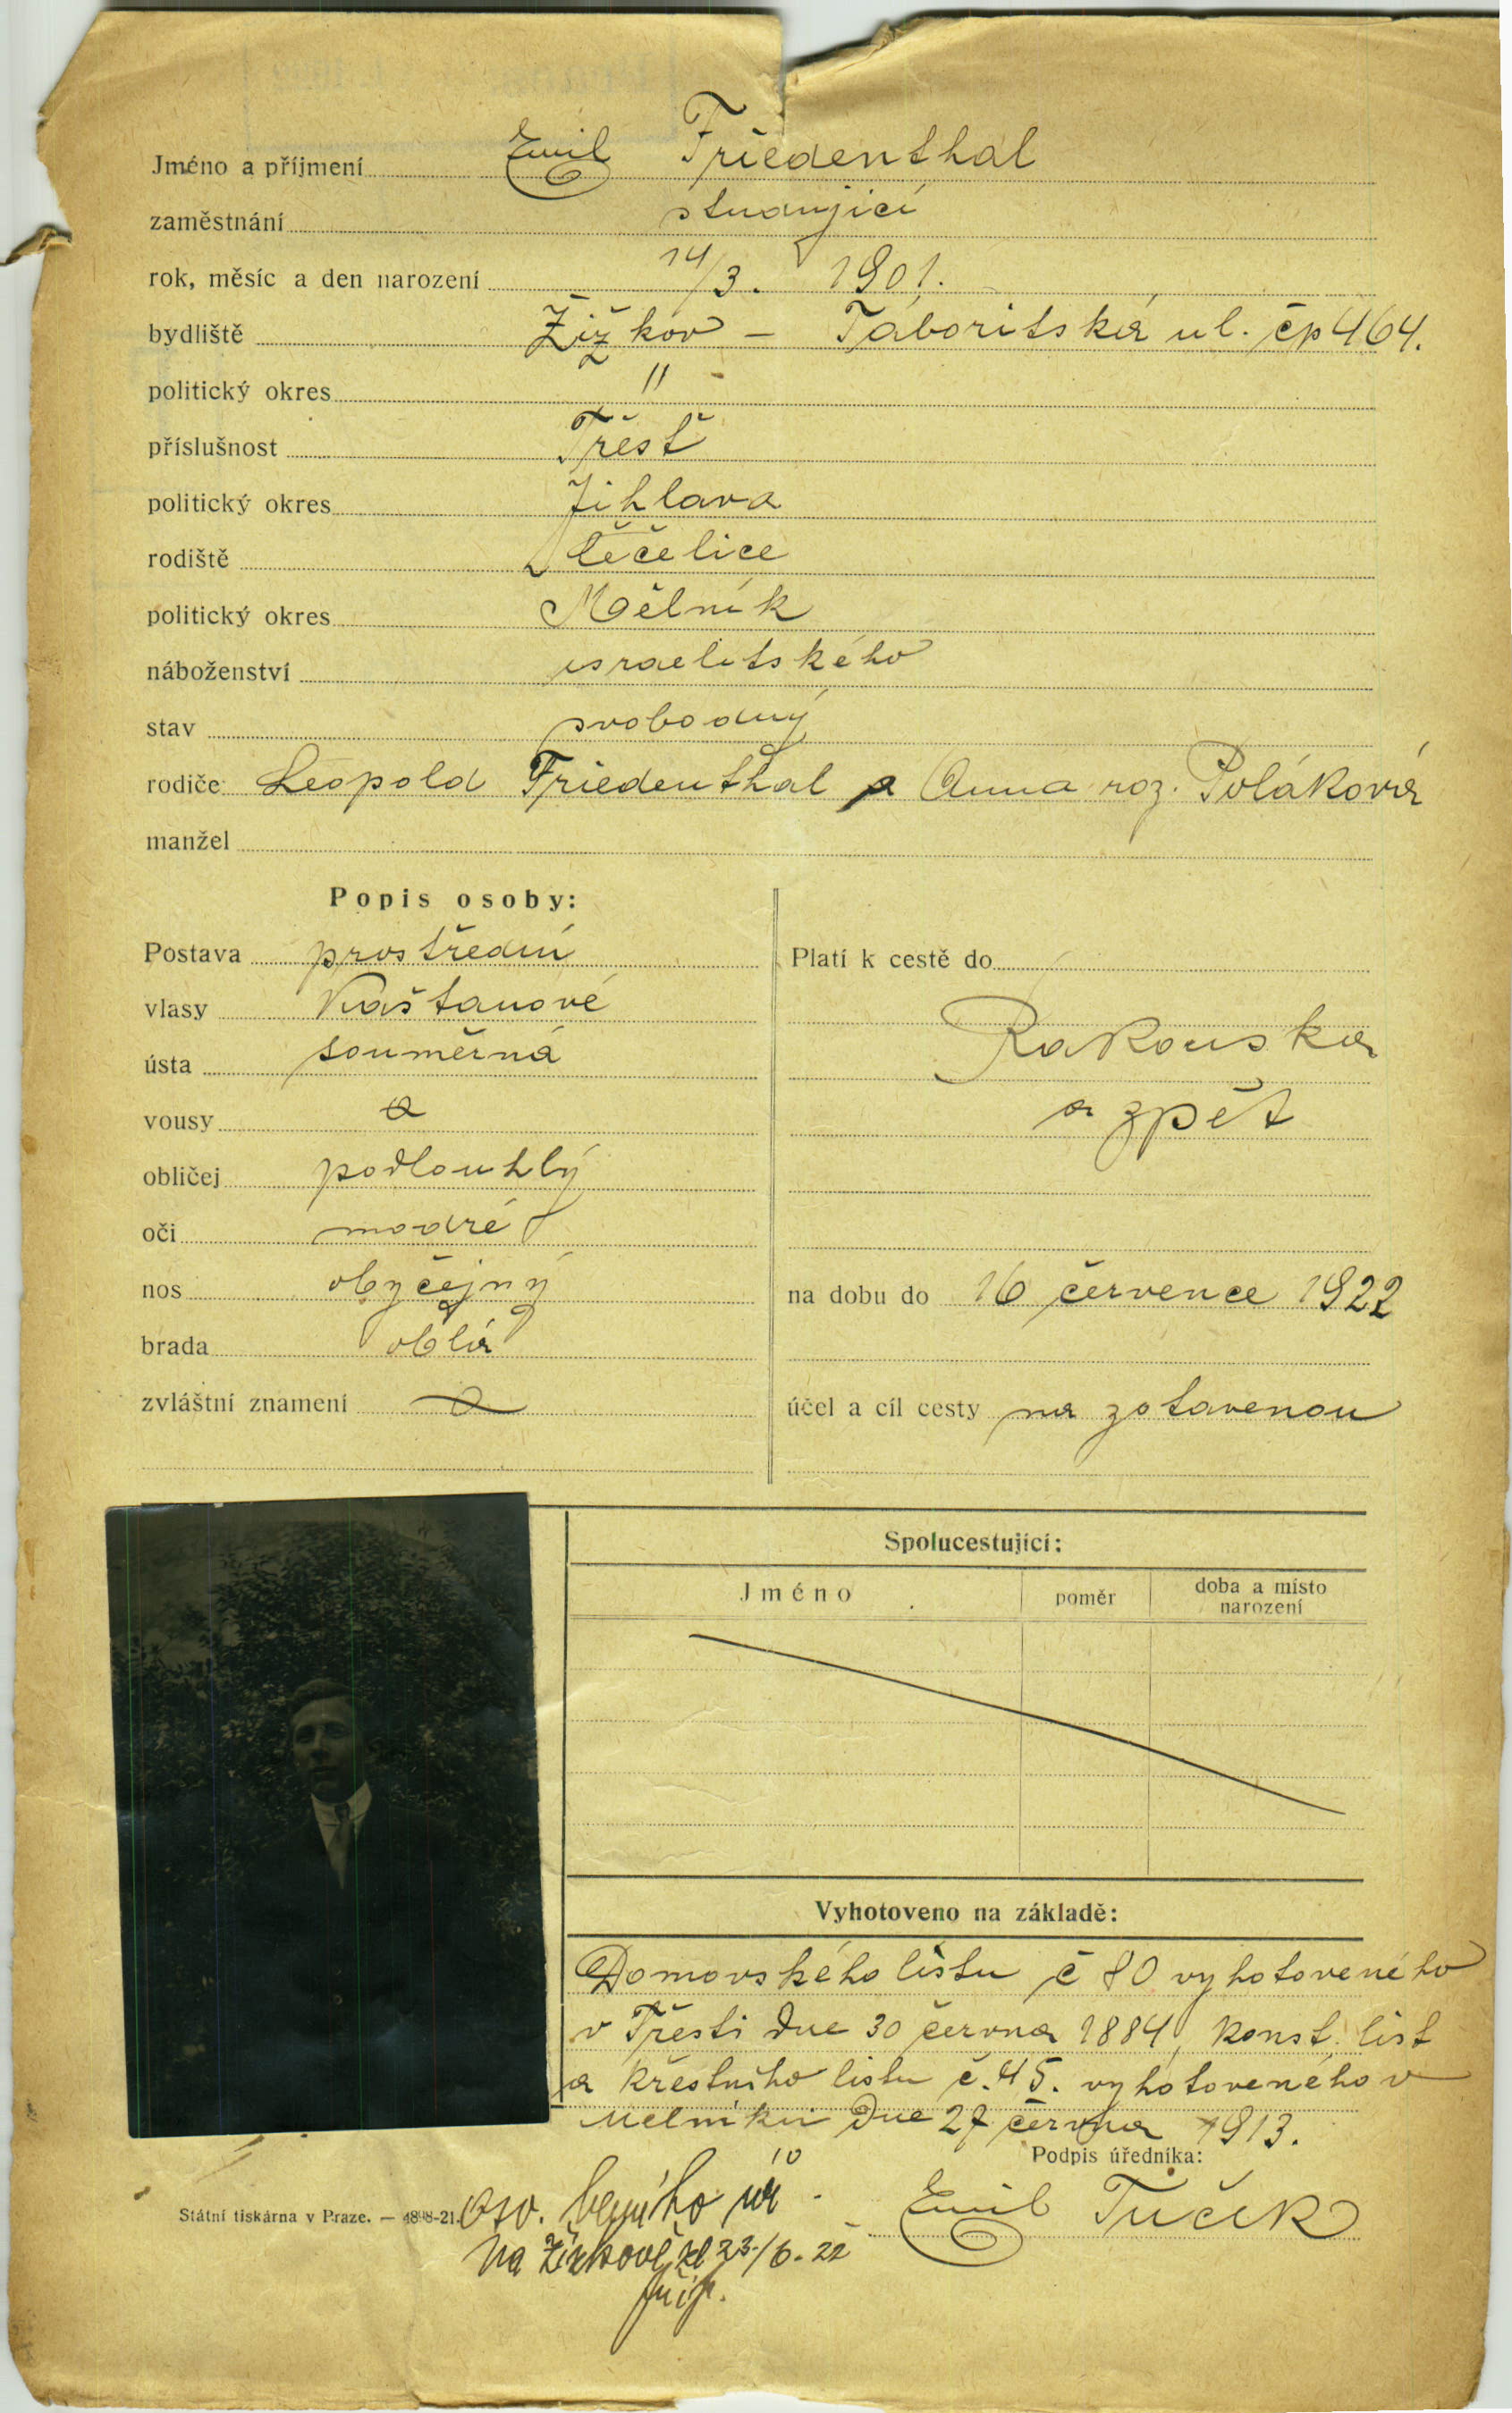 Jméno a příjmení Emil Friedenthal
zaměstnání studující
rok, měsíc a den narození 14/3. 1901.
bydliště Žižkov – Táboritská ul. čp 464.
politický okres "
příslušnost Třešť
politický okres Jihlava
rodiště Řečelice
politický okres Mělník
náboženství israelitského
stav svobodný
rodiče: Leopold Friedenthal a Anna roz. Poláková
manžel
Popis osoby:
Postava prostřední
vlasy kaštanové
ústa souměrná
vousy
obličej podlouhlý
oči modré
nos obyčejný
brada oblá
zvláštní znamení
Platí k cestě do
Rakouska
a zpět
na dobu do 16 července 1922
účel a cíl cesty na zotavenou
Spolucestující:
Jméno poměr doba a místo
narození
Vyhotoveno na základě:
Domovského listu č 80 vyhotoveného
v Třešti dne 30 června 1884, konst. list
a křestního listu č. 45. vyhotoveného v
Mělníku dne 27 června 1913.
Podpis úředníka:
Emil Tuček
Státní tiskárna v Praze. —
na Žižkově 23./6. 22